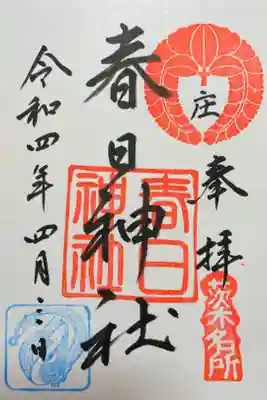 庄
奉拝
茨木名所
春日神社
春日
神社
令和四年四月三日